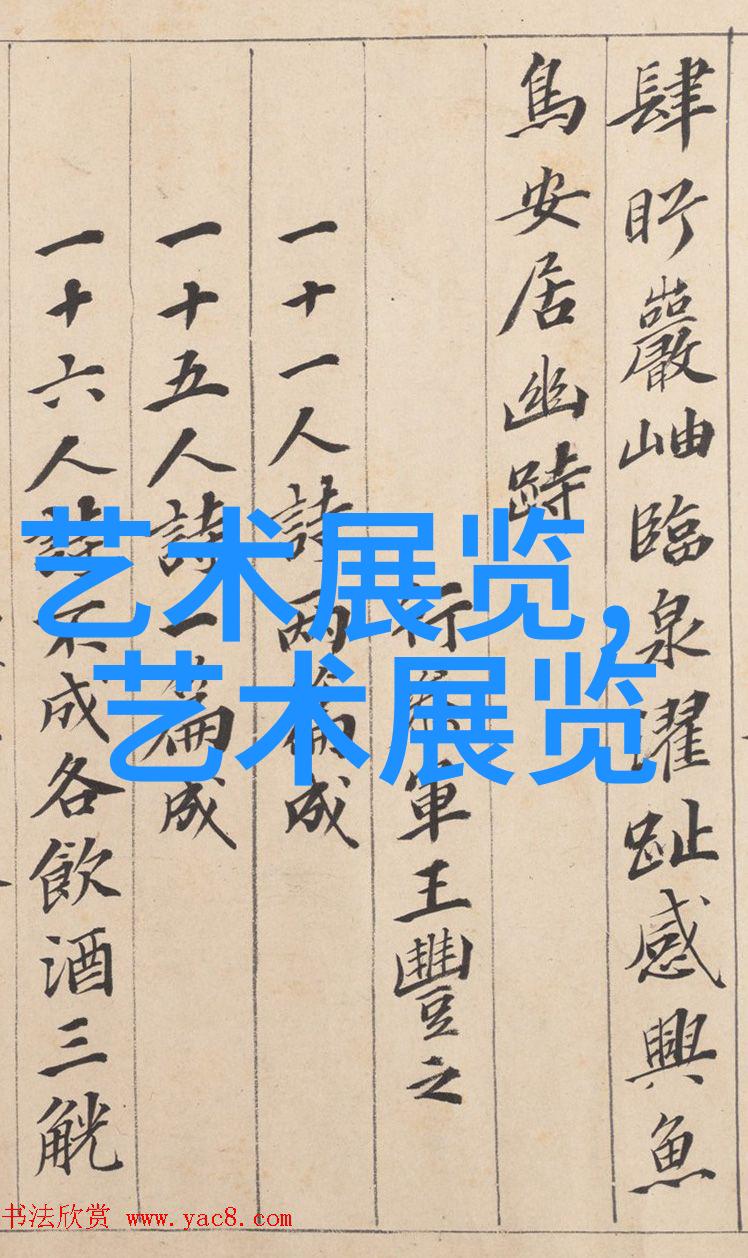 肆盻巖岫臨泉濯趾感興魚
鳥安居幽跱
行參軍王豐之
一十一人詩兩篇成
一十五人詩一篇成
一十六人詩不成各飲酒三觥
艺术展览,
艺术展览
书法欣赏 www.yac8.com